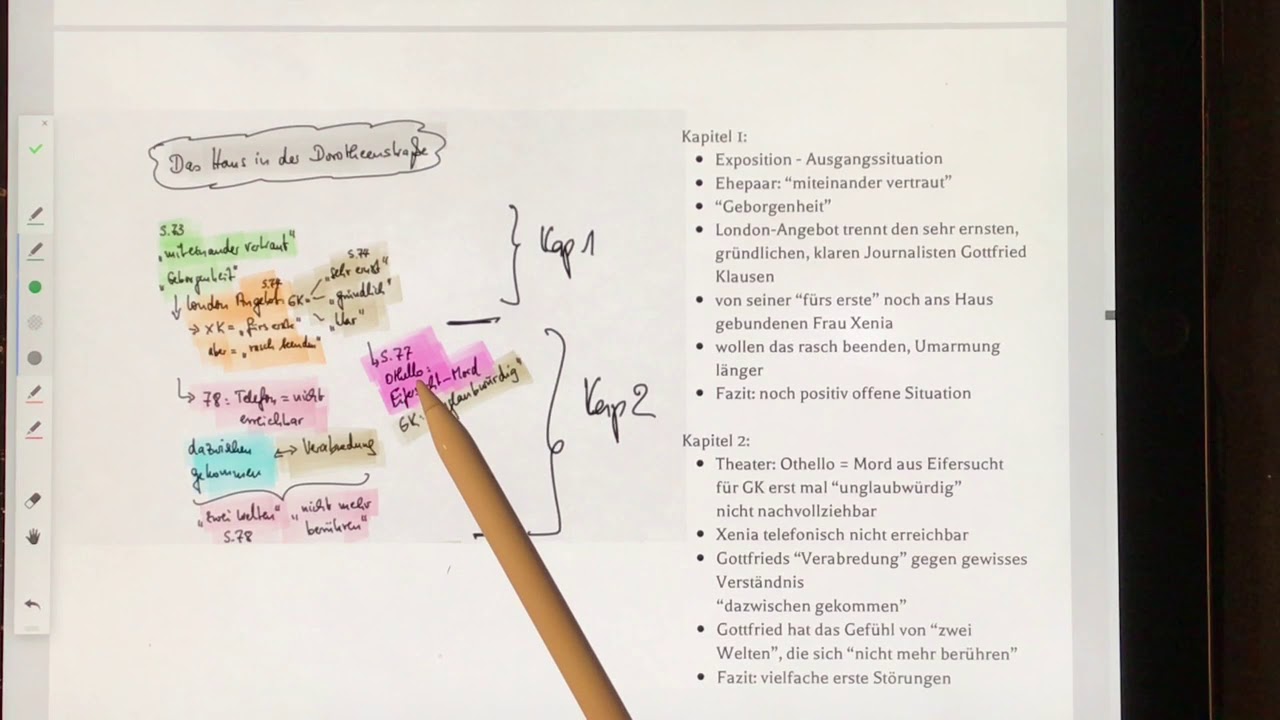 Das Haus in der Dorotheenstraße
S.73
„miteinander vertraut"
„Geborgenheit"
S.74
London Angebot
GK =
S.74
„sehr ernst"
„gründlich"
„klar"
→ XK = „fürs erste"
aber = „rasch beenden"
Kap 1
S.77
Othello:
GK:
78: Telefon = nicht
erreichbar
dazwischen
gekommen
↔ Verabredung
„zwei Welten"
S.78
„nicht mehr
berühren"
Kap 2
Kapitel 1:
• Exposition - Ausgangssituation
• Ehepaar: “miteinander vertraut”
• “Geborgenheit”
• London-Angebot trennt den sehr ernsten,
gründlichen, klaren Journalisten Gottfried
Klausen
• von seiner “fürs erste” noch ans Haus
gebundenen Frau Xenia
• wollen das rasch beenden, Umarmung
länger
• Fazit: noch positiv offene Situation
Kapitel 2:
• Theater: Othello = Mord aus Eifersucht
für GK erst mal “unglaubwürdig”
nicht nachvollziehbar
• Xenia telefonisch nicht erreichbar
• Gottfrieds “Verabredung” gegen gewisses
Verständnis
“dazwischen gekommen”
• Gottfried hat das Gefühl von “zwei
Welten”, die sich “nicht mehr berühren”
• Fazit: vielfache erste Störungen